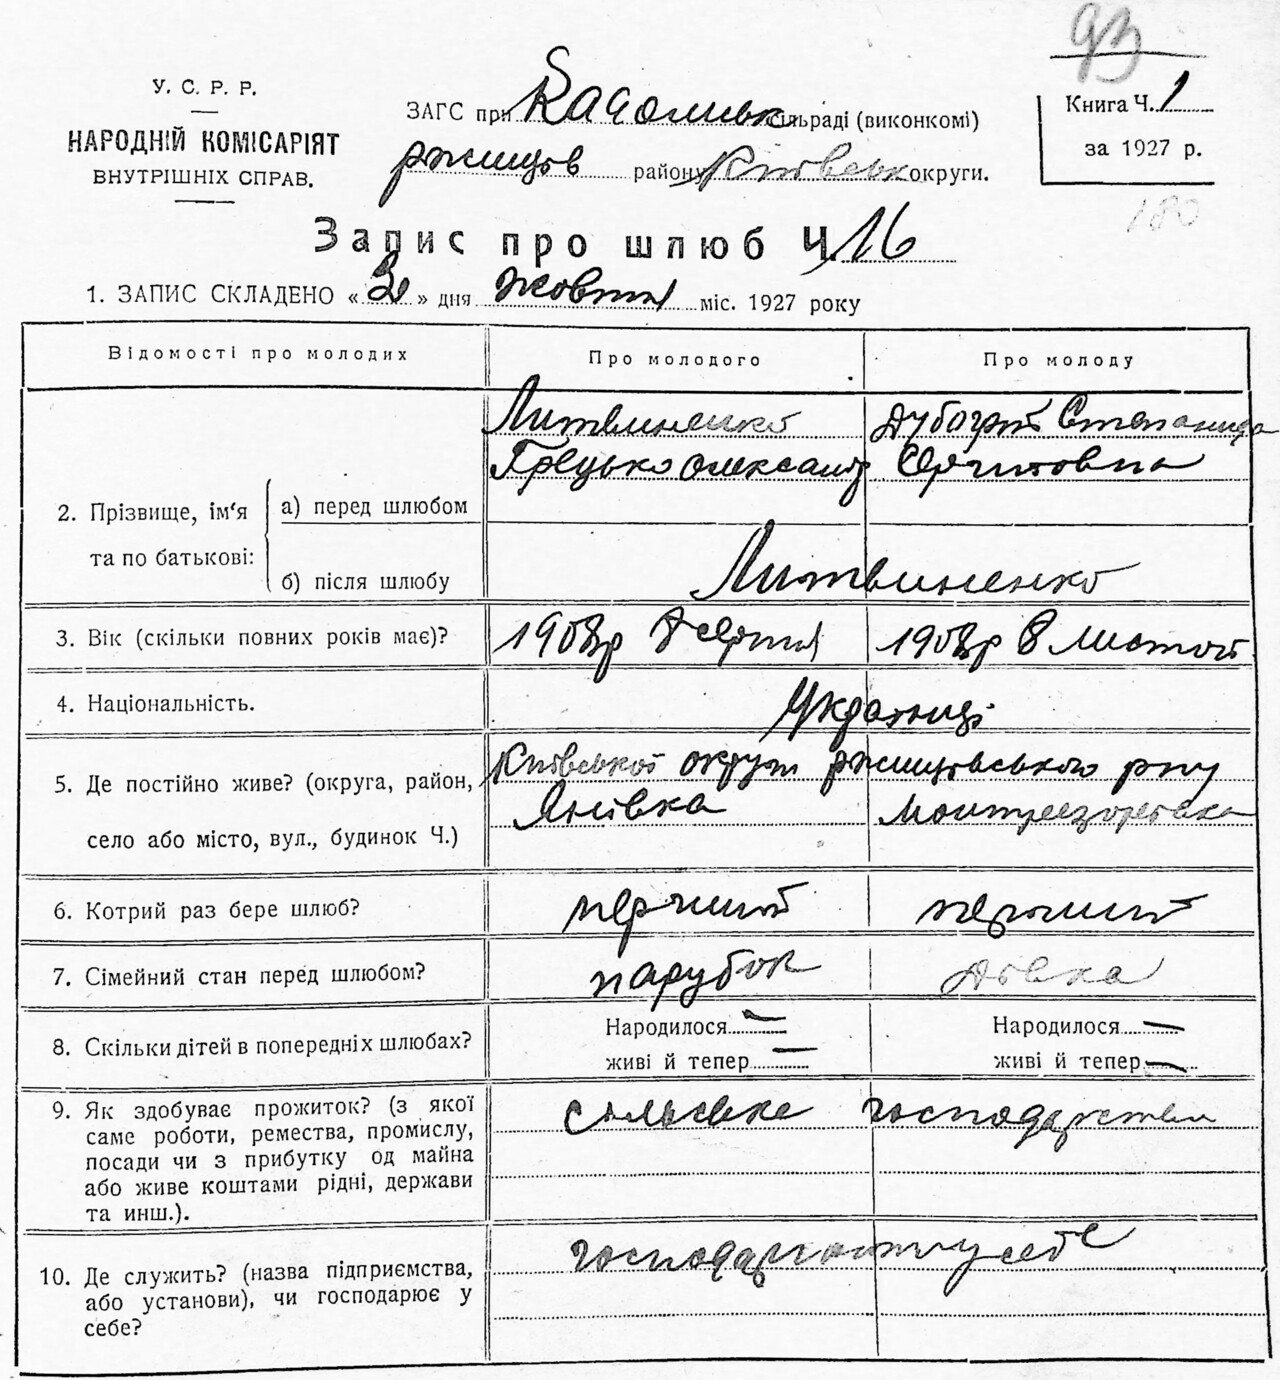 93
У. С. Р. Р.
НАРОДНІЙ КОМІСАРІЯТ
ВНУТРІШНІХ СПРАВ.
ЗАГС при сільраді (виконкомі)
ржищів району Київськ округи.
Книга Ч. 1
за 1927 р.
180
Запис про шлюб Ч. 16
1. ЗАПИС СКЛАДЕНО « » дня жовтня міс. 1927 року
Відомості про молодих Про молодого Про молоду
Литвиненко Дубогрій Степанида
Грецько Олександр
2. Прізвище, ім'я та по батькові:
а) перед шлюбом
б) після шлюбу Литвиненко
3. Вік (скільки повних років має)? 1908р 8 серпня 1908р 8 листоп
4. Національність. Українці
5. Де постійно живе? (округа, район, Київської округи ржищівського р-ну
село або місто, вул., будинок Ч.) Янівка Монтрезорівка
6. Котрий раз бере шлюб? перший перший
7. Сімейний стан перед шлюбом? парубок дівка
8. Скільки дітей в попередніх шлюбах? Народилося — Народилося —
живі й тепер — живі й тепер —
9. Як здобуває прожиток? (з якої сільське господарство
саме роботи, ремества, промислу,
посади чи з прибутку од майна
або живе коштами рідні, держави
та инш.).
10. Де служить? (назва підприємства, у себе
або установи), чи господарює у
себе?